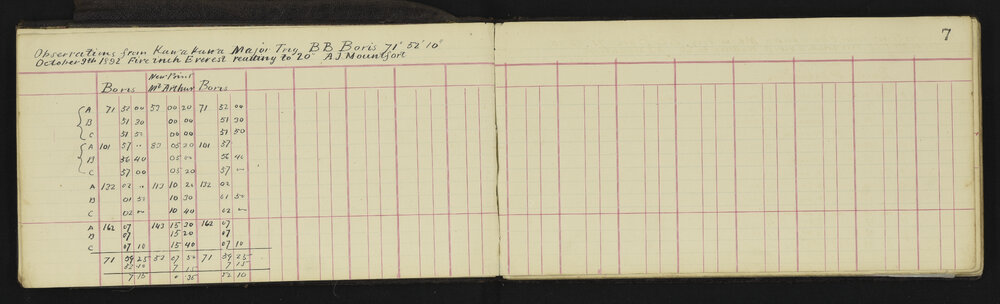 7
Observations from Kawakawa Major Trig BB Boris 71° 52' 10"
October 9th 1892 Five inch Everest reading to 20" A J Mountfort
New Point
Boris Mt Arthur Boris
A 71 52 00 53 00 20 71 52 00
B 51 30 00 00 51 30
C 51 50 00 00 51 50
A 101 57 " 83 05 20 101 57
B 56 40 05 00 56 40
C 57 00 05 20 57 "
A 132 02 " 113 10 20 132 02
B 01 50 10 30 01 50
C 02 " 10 40 02 "
A 162 07 143 15 30 162 07
B 07 15 20 07
C 07 10 15 40 07 10
71 59 25 53 07 50 71 59 25
7 15 7 15
7 15 52 10